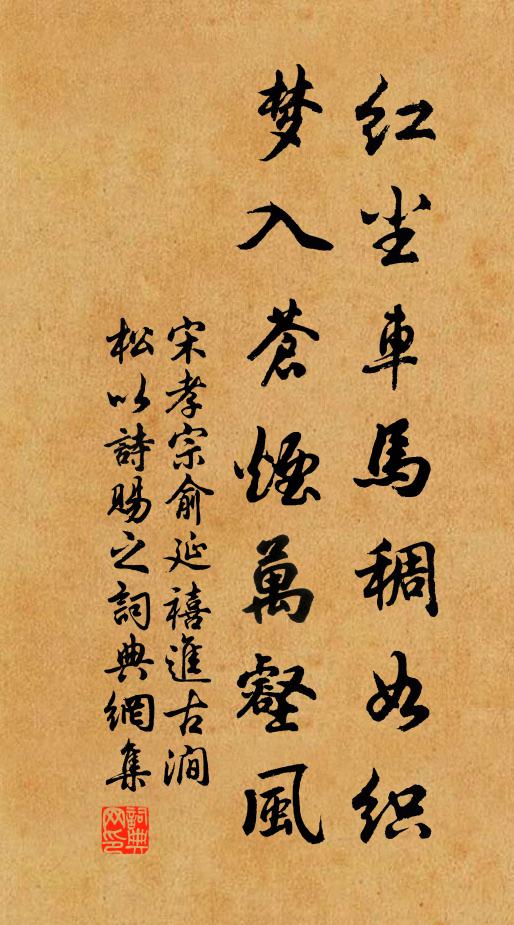 红尘車馬稠如织
梦入蒼煙萬壑風
宋孝宗俞延禧進古澗
松以詩賜之詞典網集
詞典网印